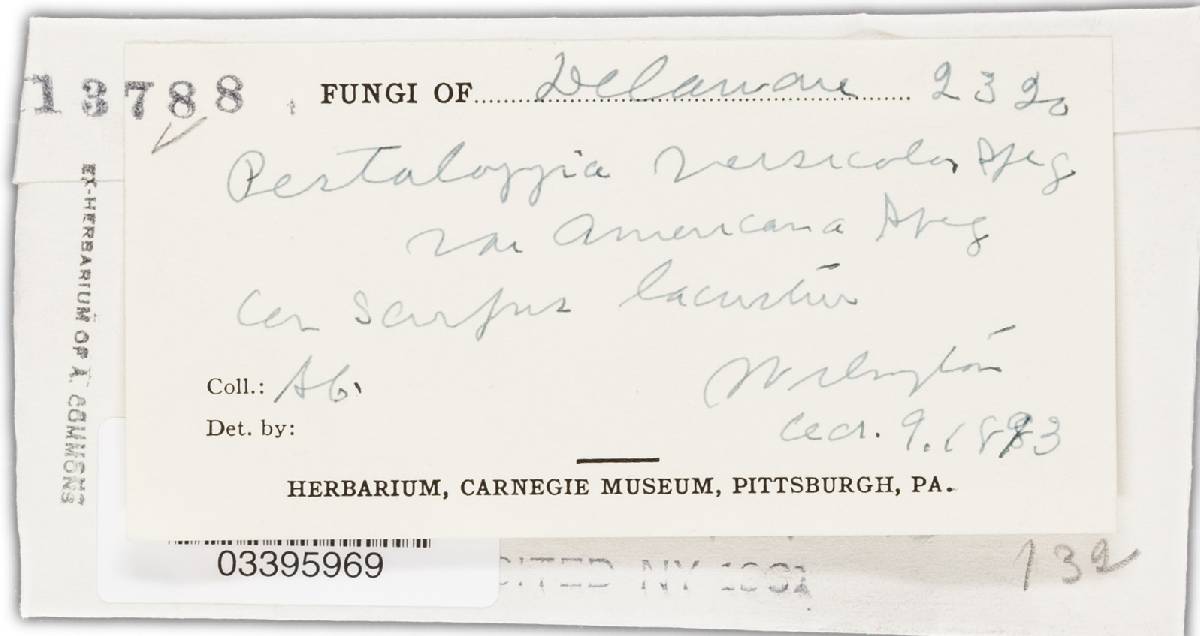 13788
FUNGI OF Delaware 2320
Pestalozzia versicolor Speg
var Americana Speg
on Scirpus lacustris
Coll.: AC. Wilmington
Det. by: 9. 1893
HERBARIUM, CARNEGIE MUSEUM, PITTSBURGH, PA.
EX-HERBARIUM OF A. COMMONS
03395969
NY
132